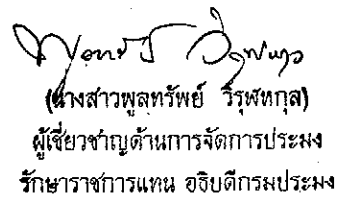 (นางสาวพูลทรัพย์ วิรุฬหกุล)
ผู้เชี่ยวชาญด้านการจัดการประมง
รักษาราชการแทน อธิบดีกรมประมง